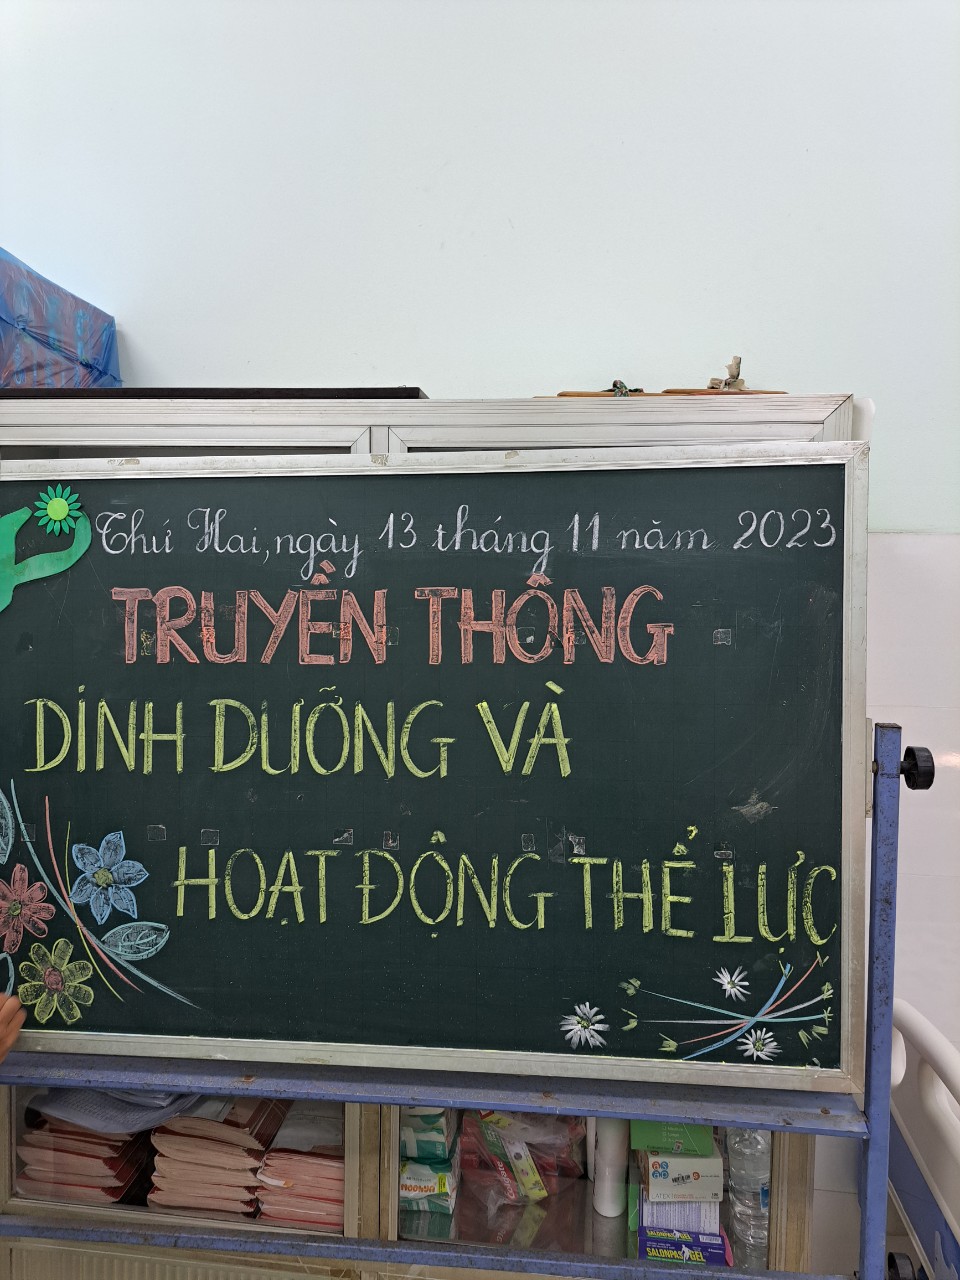 Thứ Hai, ngày 13 tháng 11 năm 2023
TRUYỀN THÔNG
DINH DƯỠNG VÀ
HOẠT ĐỘNG THỂ LỰC
LATEX
SALONPAS GEL